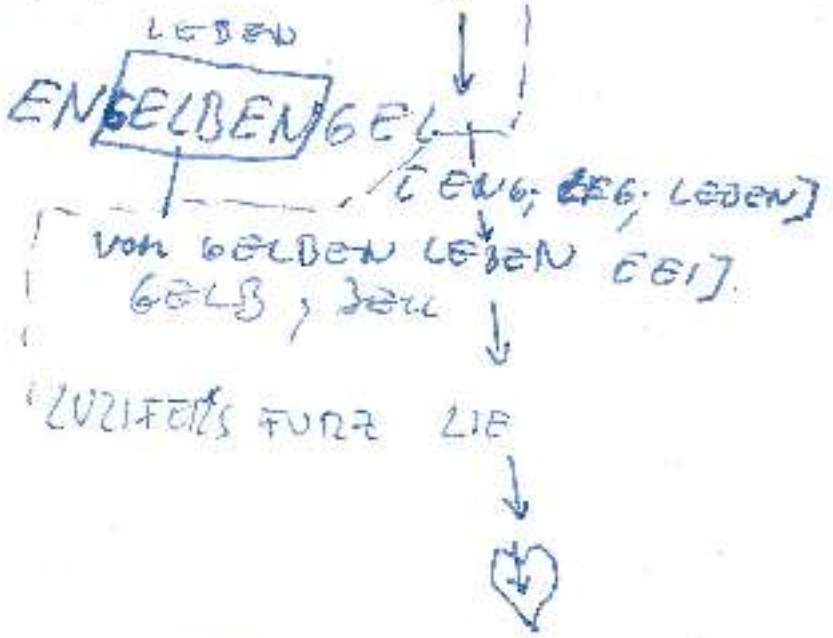 LEBEN
ENGELBENGEL
[ENG; LEBEN]
von GELBEN LEBEN [EI].
GELB,
LUZIFERS FURZ LIE